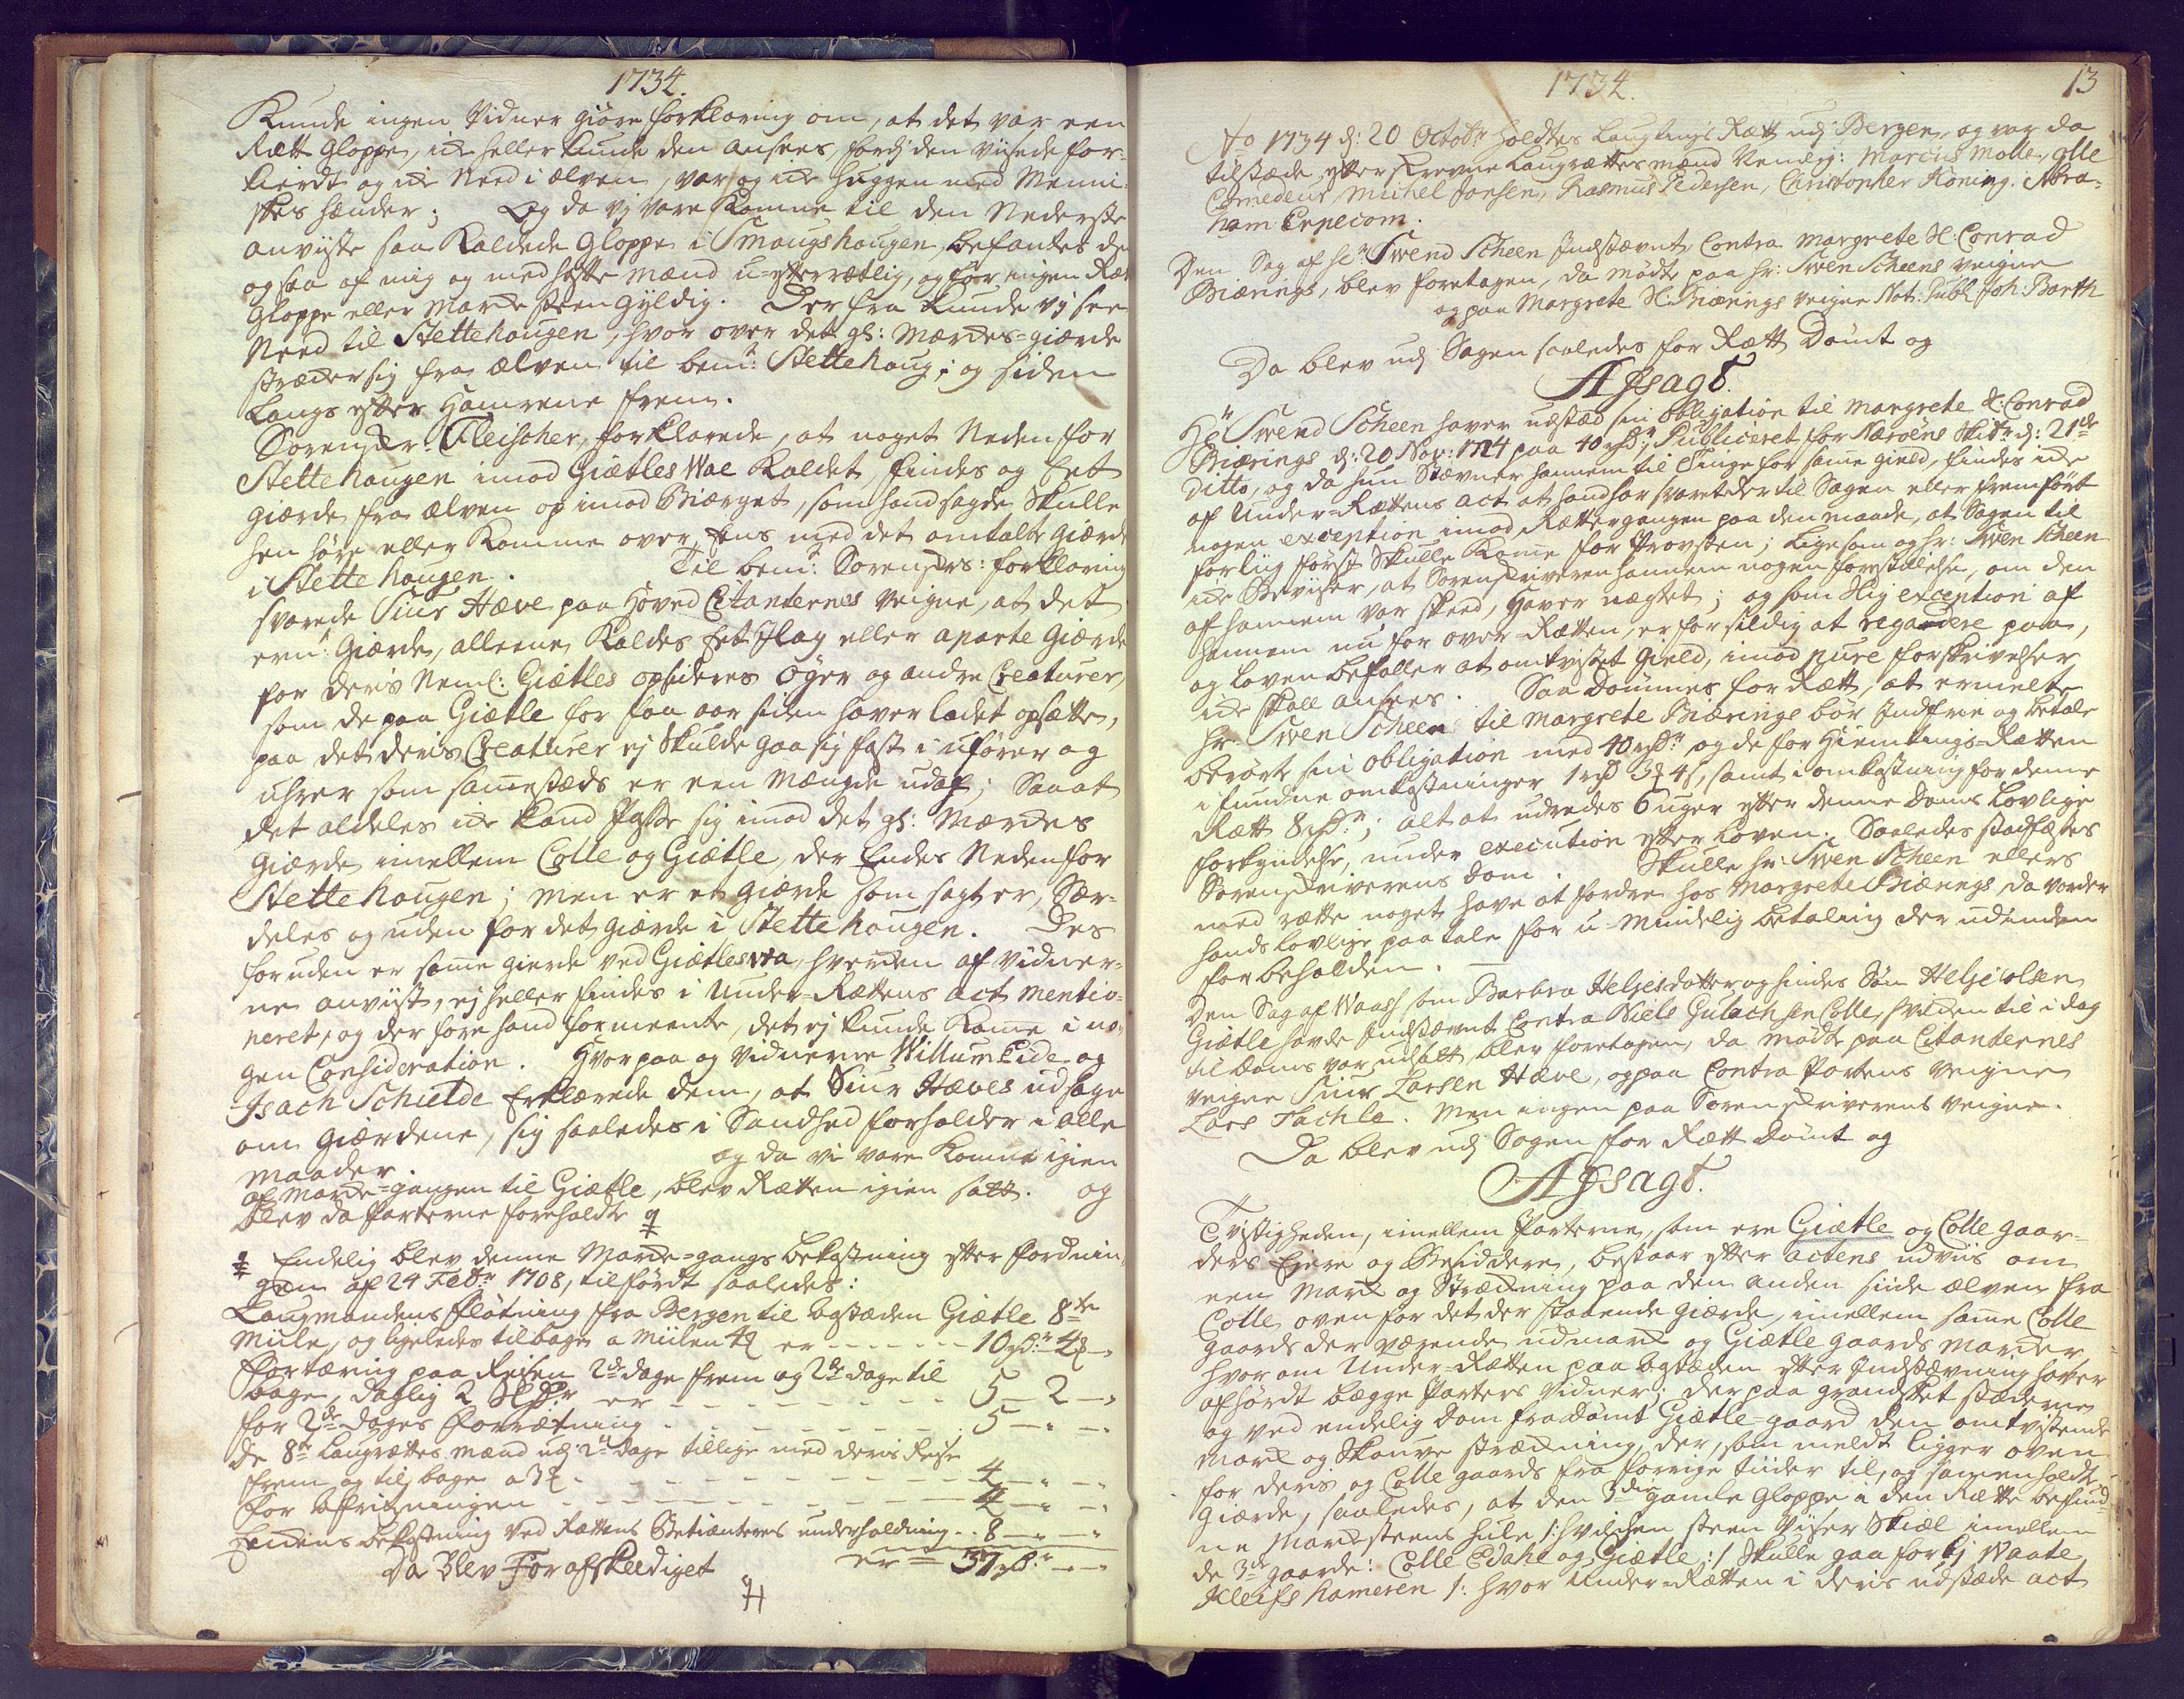 1734.
Kunde ingen Vidner giöre forklaring om, at det var een
Rætt Gloppe, icke heller kunde den ansees, fordj den viisede for-
kierdt og icke Need i ælven, var og icke huggen med Menni-
skes hænder; Og da vj vare komne til den Nederste
anviiste saa kaldede Gloppe i Smaugshaugen, befantes de
og saa af mig og med hafte mænd u-efterrætlig, og for ingen Ræt
Gloppe eller Marcke steen gyldig. Der fra kunde vj see
Need til Stettehaugen, hvor over det gl: Marckes-giærde
strecker sig fra ælven til bem:te Stettehaug; og siden
Langs efter Hamrene frem.
Sorenskr: Fleischer forklarede, at noget Neden for
Stettehaugen imod Giætles Wae kaldet, findes og Eet
giærde fra ælven op imod Biærget, som hand sagde skulle
hen höre eller komme over Eens med det omtalte Giærde
i Stettehaugen. Til bem:te Sorenskrs: forklaring
svarede Siur Hæve paa Hoved Citanternes veigne, at det
erm:te Giærde, alleene kaldes Eet Flag eller aparte Giærde
for deris Neml: Giætles opsideres Öger og andre Creaturer,
som de paa Giætle for faa aar siden haver ladet opsætte,
paa det deris Creaturer ej skulde gaa sig fast i uförer og
uhrer som sam̄estæds er een mængde udaf; Saa at
det aldeles icke kand Passe sig imod det gl: Marckes
Giærde imellem Colle og Giætle, der Endes Neden for
Stettehaugen; men er et giærde som sagt er, Sær-
deles og uden for det giærde i Stettehaugen. Des
foruden er sam̄e gierde ved Giætleswa, hvercken af vidner-
ne anviist, ej heller findes i Under-Rættens act mentio-
neret, og der fore hand formeente, det ej kunde kom̄e i no-
gen Consideration. Hvorpaa og vidnerne Willum Eide og
Isach Schielde Erklærede dem, at Siur Hæves udsage
om giærdene, sig saaledes i Sandhed forholder i alle
maader. og da vi vare komne igien
af marcke-gangen til Giætle, blev Rætten igien satt. og
blev da Parterne foreholdt
Endelig blev denne Marcke-gangs bekostning efter fordnin-
gen af 24 Febr: 1708, tilfördt saaledes:
Laugmandens fløtning fra Bergen til aastæden Giætle 8te
Miile, og ligeledes tilbage a Miilen 4 er - - - - 10 rdr: 4 -
Fortæring paa Reisen 2de dage frem og 2de dage til
bage, daglig er - - - - - - - 5 - 2 -
for 2de dages forrætning - - - - - - 5 - - -
de 8te Laugrættes mænd udj 2de dage tillige med deris Reise
frem og tilbage a - - - - - - - 4 - - -
for afskrivningen - - - - - - - 4 - - -
Eendens bekostning ved Rættens Betiænteres underholdning - - 8 - - -
Da blev For afskeediget er = 37 rdr: - -
1734.
13
Ao 1734 d: 20 Octobr: holdtes Laugtings Rætt udj Bergen, og var da
tilstæde efterskrevne Laugrættesmænd Nemlig: Marcus Molle, olle
Amedeus, Michel Jonsen, Rasmus Pedersen, Christopher Koning. Abra-
ham Erpecom.
Den Sag af hr: Swend Scheen Indstævnt Contra Margrete Sl: Conrad
Biærings, blev foretagen, da mödte paa hr: Swen Scheens veigne
og paa Margrete Sl: Biærings veigne Not: Publ: Joh: Barth
Da blev udj Sagen saaledes for Rætt Dömt og
Afsagt.
Hr Swend Scheen haver udstæd sin obligation til Margrete Sl: Conrad
Biærings d: 20 Nov: 1724 paa 40 rdr:, Publiceret for Næröens Skibr: d: 21de
Ditto, og da hun stævner hannem til Tinge for sam̄e gield, findes icke
af Under-Rættens act at hand har svaret der til Sagen eller fremfört
nogen exception imod Rættergangen paa den maade, at Sagen til
forliig först skulle kom̄e for Provsten; Ligesom og hr: Swen Scheen
icke Beviiser, at Sorenskriveren hannem nogen forestillelse, om den
af hannem var skeed, haver nægtet; og som slig exception af
hannem nu for over-Rætten, er for sildig at regardere paa,
og Loven befaller at omtvistet gield, imod pure forskrivelser
icke skall ansees. Saa Dömmes for Rætt, at ermelte
hr: Swen Scheen til Margrete Biærings bör Indfrie og betale
berörte sin obligation med 40 rdr: og de for Hiemtings-Rætten
i fundne omkostninger 1 rd 3 4 s, samt i omkostning for denne
Rætt 8 rdr:; alt at udredes 6 uger efter denne Doms Lovlige
forkyndelse, under execution efter Loven. Saaledes stadfæstes
Sorenskriverens Dom. Skulle hr: Swen Scheen ellers
med rætte noget have at fordre hos Margrete Biærings, da vorder
hands Lovlige paatale for u-mindelig betaling der udinden
forbeholden.
Den Sag af Waass som Barbra Heljesdatter og hindes Sön Helje olsen
Giætle havde Indstævnt Contra Niels Gulachsen Colle, hvilcken til i dag
til Doms var udsatt, blev foretagen, da mödte paa Citanternes
veigne Siur Larsen Hæve, og paa Contra Partens veigne
Lars Fachle. Men ingen paa Sorenskriverens veigne.
Da blev udj Sagen for Rætt Dömt og
Afsagt.
Tvistigheden, imellem Parterne, som ere Giætle og Colle gaar-
ders Eyere og Besiddere, bestaar efter actens udviis om
een Marck og Strækning paa den anden siide ælven fra
Colle, oven for det der staaende giærde, imellem sam̄e Colle
gaards der værende udmarck og Giætle gaards marcker
hvorom Under-Rætten paa aastæden efter Indstævning haver
afhördt begge Parters vidner. Der paa grandsket stæderne
og ved endelig Dom fradömt Giætle-gaard den omtvistende
marck og skauve strækning, der, som meldt ligger oven
for deris og Colle gaards fra forrige tiider til, og sammenholdte
giærde, saaledes, at den 3die gamle Gloppe i den Rætte befund-
ne Marckesteens hule /: hvilchen steen viiser Skiæl imellem
de 3de gaarde: Colle Edahl og Giætle :/ skulle gaa forbj Waate
Kleifs hameren /: hvor Under-Rætten i deris udstæde act